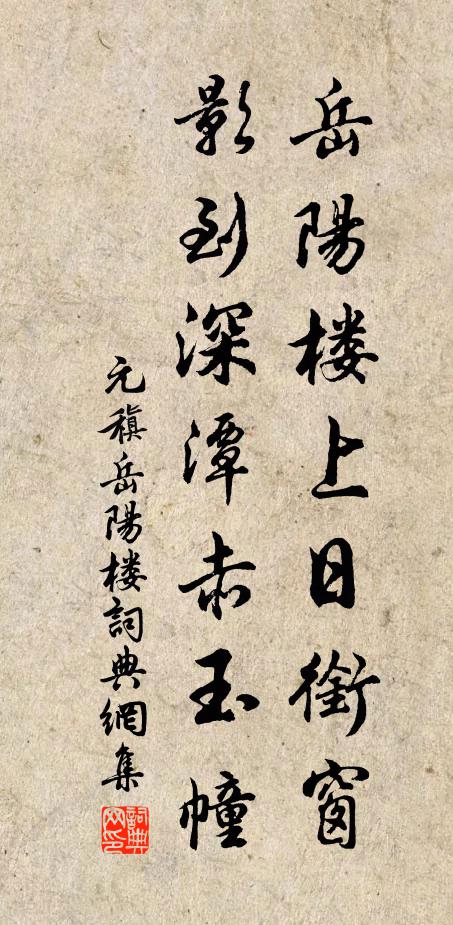 岳陽楼上日銜窗
影到深潭赤玉幢
元稹岳陽楼詞典網集
詞典网印